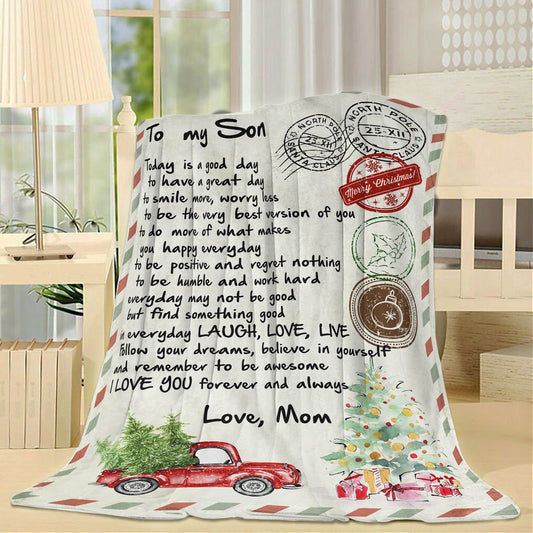 To my Son
Today is a good day
to have a great day
to smile more, worry less
to be the very best version of you
to do more of what makes
you happy everyday
to be positive and regret nothing
to be humble and work hard
everyday may not be good
but find something good
in everyday LAUGH, LOVE, LIVE
Follow your dreams, believe in yourself
and remember to be awesome
I LOVE YOU forever and always
Love, Mom
NORTH POLE
25-XII
SANTA CLAUS
NORTH POLE
25-XII
SANTA CLAUS
Merry Christmas!